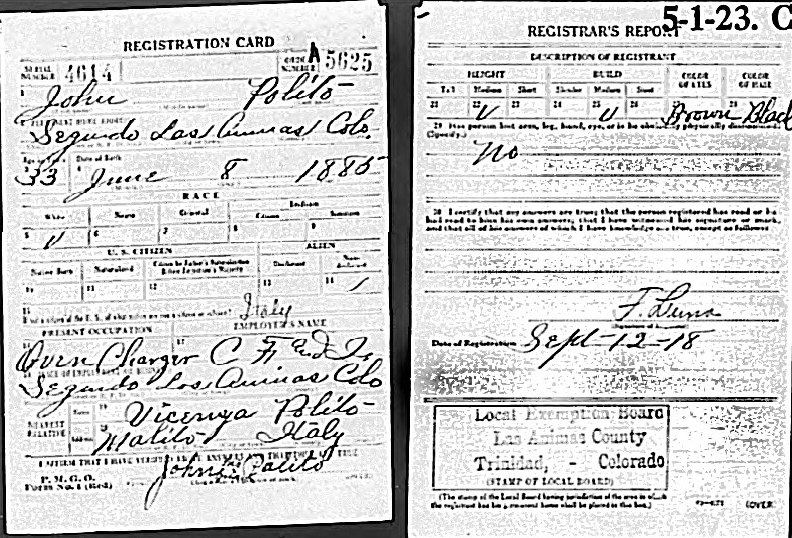 REGISTRATION CARD
SERIAL NUMBER 4614 ORDER NUMBER A 5625
1 John Polito
2 PERMANENT HOME ADDRESS
Segundo Las Animas Colo.
Age in Years Date of Birth
33 4 June 8 1885
RACE
White Negro Oriental Indian
Citizen Noncitizen
5 ✓ 6 7 8 9
U. S. CITIZEN ALIEN
Native Born Naturalized Citizen by Father's Naturalization Before Registrant's Majority Declarant Non-declarant
10 11 12 13 14 /
15 Italy
PRESENT OCCUPATION EMPLOYER'S NAME
Oven Charger C F and I.
Segundo Las Animas Colo
NEAREST RELATIVE Name 19 Vicenya Polito
Address 20 Malito Italy
I AFFIRM THAT I HAVE VERIFIED ABOVE ANSWERS AND THAT THEY ARE TRUE
John Polito
P. M. G. O.
Form No. 1 (Red)
5-1-23. C
REGISTRAR'S REPORT
DESCRIPTION OF REGISTRANT
HEIGHT BUILD COLOR OF EYES COLOR OF HAIR
Tall Medium Short Slender Medium Stout
21 22 ✓ 23 24 25 ✓ 26 Brown 28 Black
29 Has person lost arm, leg, hand, eye, or is he obviously physically disqualified?
(Specify.)
No
30 I certify that my answers are true; that the person registered has read or has
had read to him his own answers; that I have witnessed his signature or mark,
and that all of his answers of which I have knowledge are true, except as follows:
Date of Registration Sept-12-18
Local Exemption Board
Las Animas County
Trinidad, - Colorado
(STAMP OF LOCAL BOARD)
(The stamp of the Local Board having jurisdiction of the area in which
the registrant has his permanent home shall be placed in this box.)
(OVER)